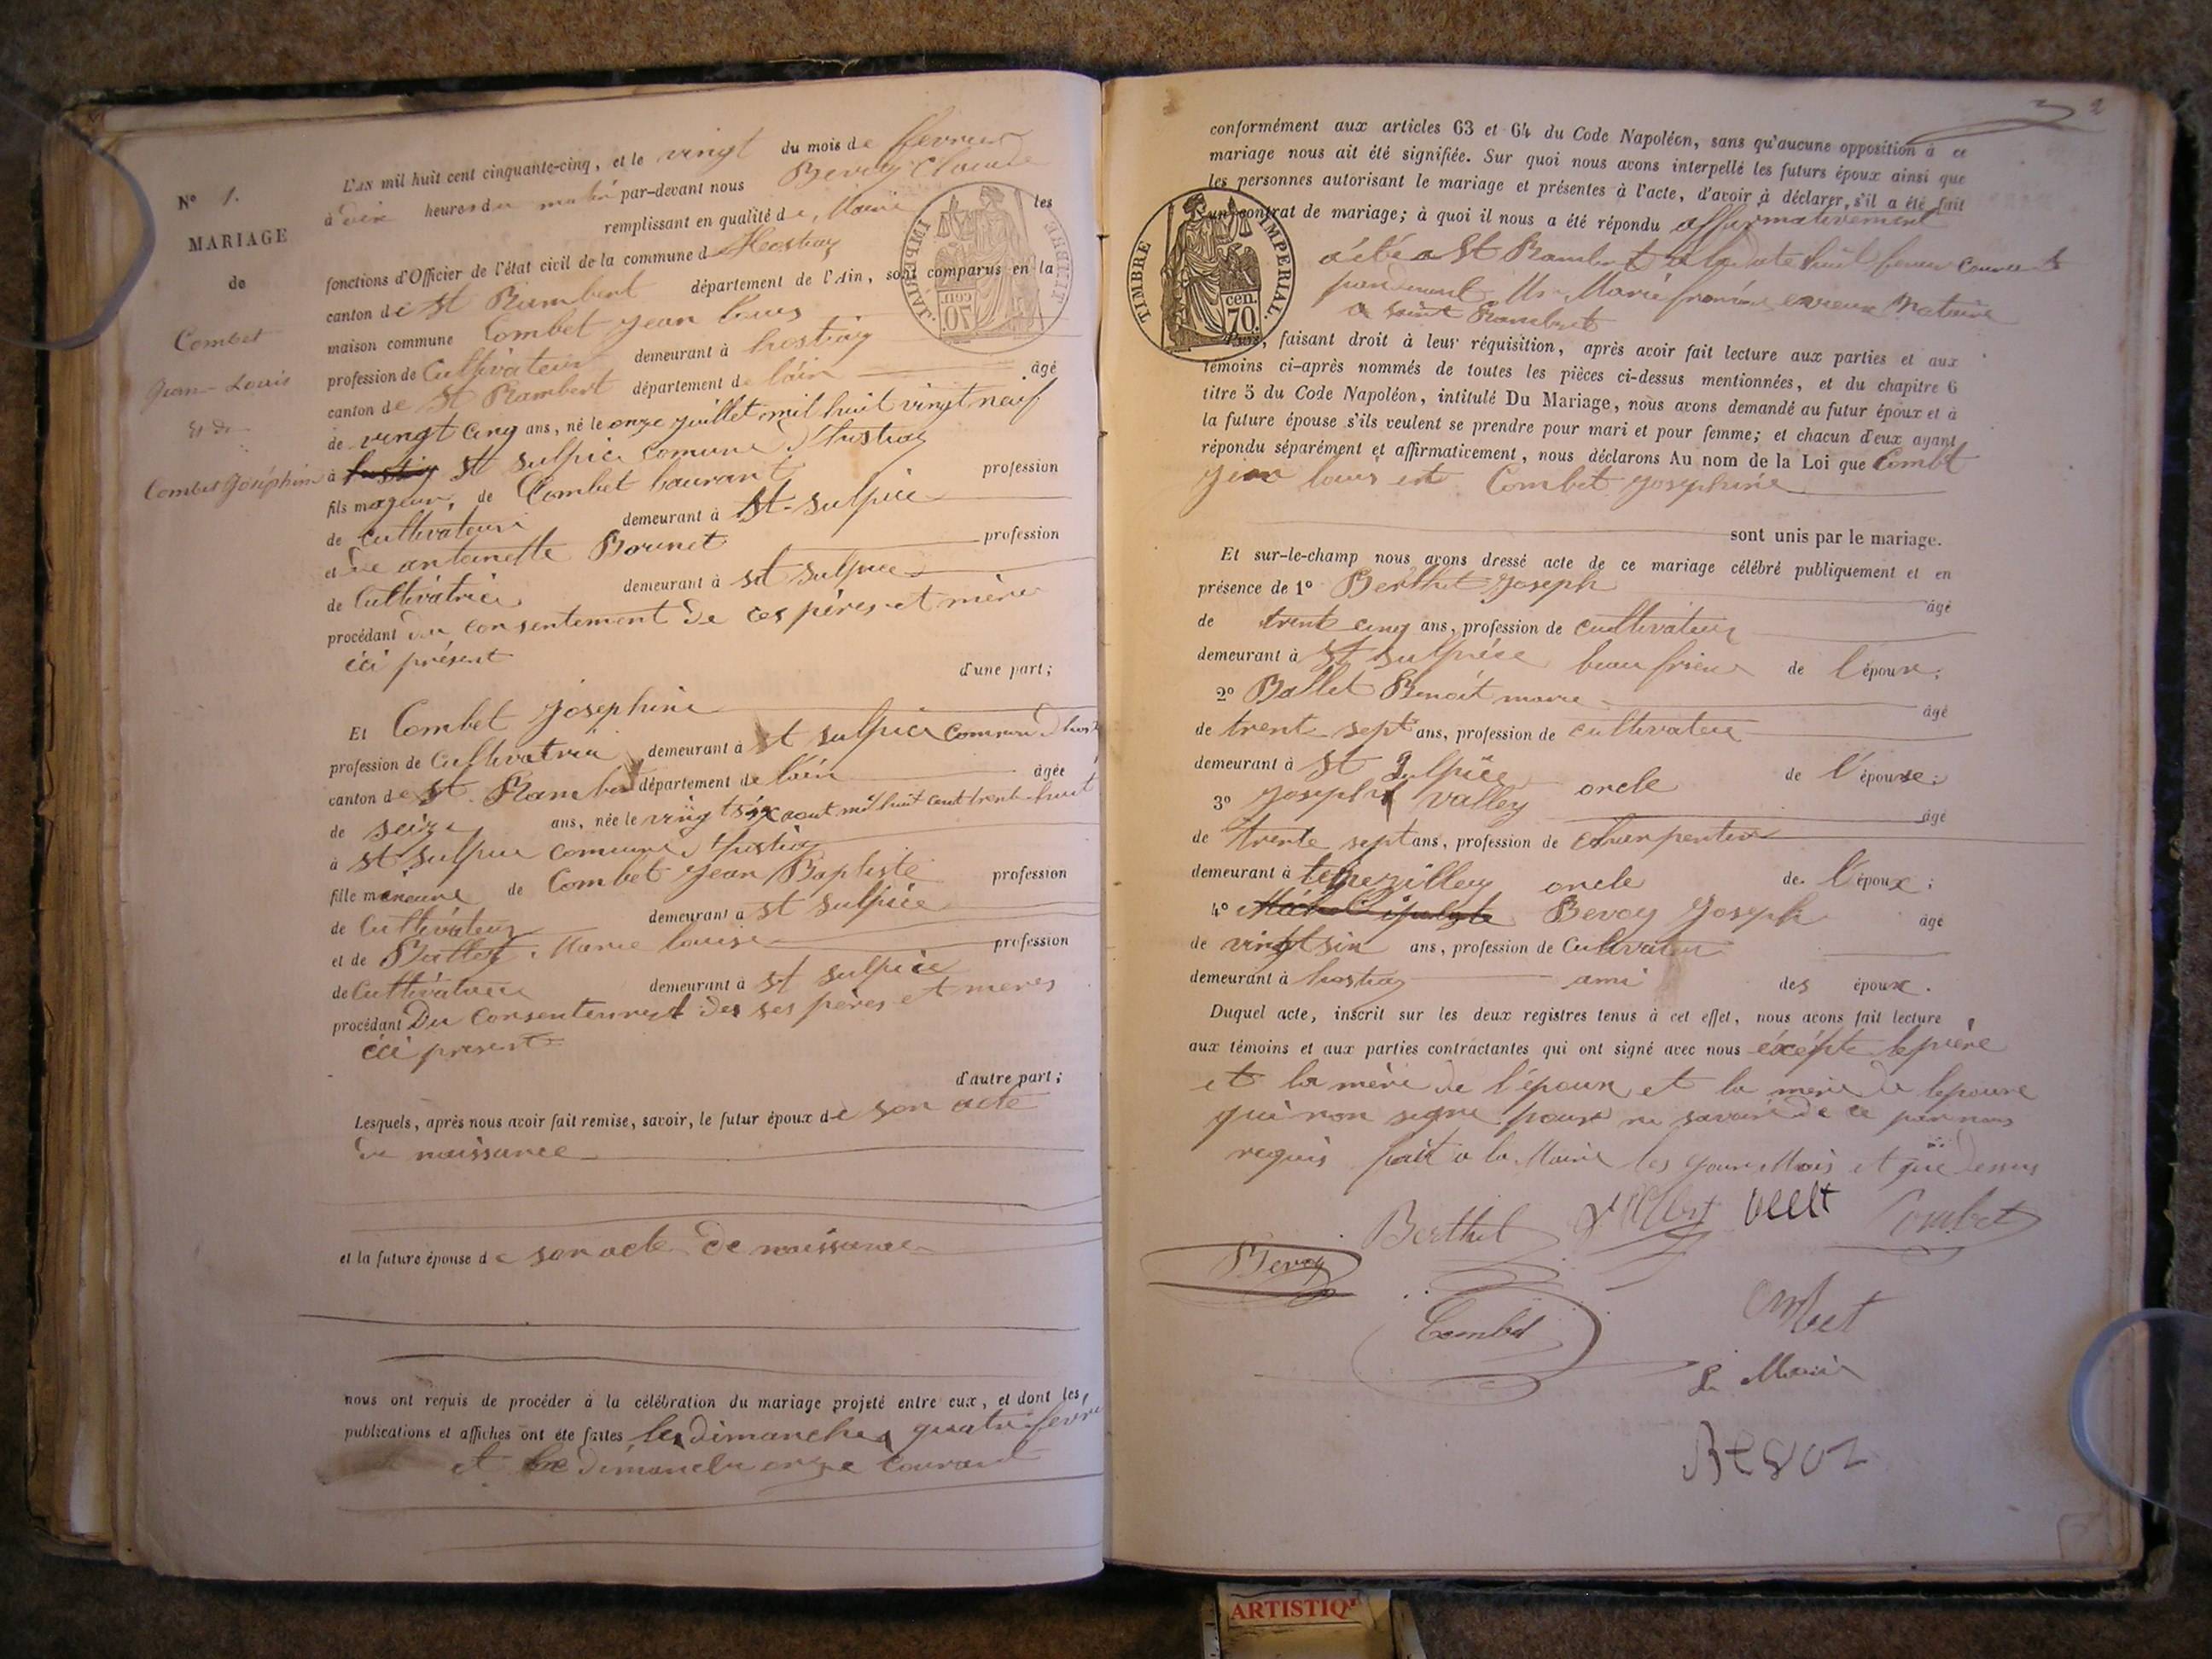 N° 1.
MARIAGE
de
Combet
Jean-Louis
Et de
Combet Joséphine
L'an mil huit cent cinquante-cinq, et le vingt du mois de fevrier
à dix heures du matin par-devant nous Bevoz Claude
remplissant en qualité de Maire les
fonctions d'Officier de l'état civil de la commune d Hostiaz
canton de St Rambert département de l'Ain, sont comparus en la
maison commune Combet Jean Louis
profession de Cultivateur demeurant à hostiaz
canton de St Rambert département de láin âgé
de vingt cinq ans, né le onze juillet mil huit vingt neuf
à St Sulpice comune d'hostiaz
fils mageur de Combet Laurant profession
de Cultivateur demeurant à St-Sulpice
et de antoinette Borunet profession
de Cultivatrice demeurant à St Sulpice
procédant du consentement de ces pères et mère
ici présent
d'une part;
Et Combet Josephine
profession de Cultivatrice demeurant à St Sulpice commune d'host
canton de St. Rambert département de láin âgée
de seize ans, née le vingt six aout mil huit cent trente huit
à St Sulpice comune d'hostiaz
fille mineure de Combet Jean Baptiste profession
de Cultivateur demeurant à St Sulpice
et de Ballet Marie louise profession
de Cultivatrice demeurant à St Sulpice
procédant Du Consentement des ses pères et meres
ici present
d'autre part;
Lesquels, après nous avoir fait remise, savoir, le futur époux de son acte
de naissance
et la future épouse de son acte de naissance
nous ont requis de procéder à la célébration du mariage projeté entre eux, et dont les
publications et affiches ont été faites les dimanches quatre fevrie
et le dimanche onze Courant
2
conformément aux articles 63 et 64 du Code Napoléon, sans qu'aucune opposition à ce
mariage nous ait été signifiée. Sur quoi nous avons interpellé les futurs époux ainsi que
les personnes autorisant le mariage et présentes à l'acte, d'avoir à déclarer, s'il a été fait
un contrat de mariage; à quoi il nous a été répondu affirmativement
a été a St Rambert a la date huit fevrier courant
par devant Mr Marie notaire
a saint Rambert
TIMBRE IMPERIAL.
70 cen.
Nous, faisant droit à leur réquisition, après avoir fait lecture aux parties et aux
témoins ci-après nommés de toutes les pièces ci-dessus mentionnées, et du chapitre 6
titre 5 du Code Napoléon, intitulé Du Mariage, nous avons demandé au futur époux et à
la future épouse s'ils veulent se prendre pour mari et pour femme; et chacun d'eux ayant
répondu séparément et affirmativement, nous déclarons Au nom de la Loi que Combet
Jean louis et Combet Josephine
sont unis par le mariage.
Et sur-le-champ nous avons dressé acte de ce mariage célébré publiquement et en
présence de 1° Berthet Joseph âgé
de trente cinq ans, profession de cultivateur
demeurant à St Sulpice beau frère de l'époux;
2° Ballet Benoit marie âgé
de trent sept ans, profession de cultivateur
demeurant à St Sulpice oncle de l'épouse;
3° Joseph Valley âgé
de trente sept ans, profession de charpentier
demeurant à oncle de l'époux;
4° Bevoz Joseph âgé
de vingt six ans, profession de Cultivateur
demeurant à hostiaz ami des époux.
Duquel acte, inscrit sur les deux registres tenus à cet effet, nous avons fait lecture
aux témoins et aux parties contractantes qui ont signé avec nous excepte le père
et la mère de l'époux et la mere de lepouse
qui non signe pour ne savoir de ce par nous
requis fait a la Mairie les jour Mois et que dessus
Berthet Combet
Bevoz
Combet Combet
Le Maire
Bevoz
ARTISTIQ